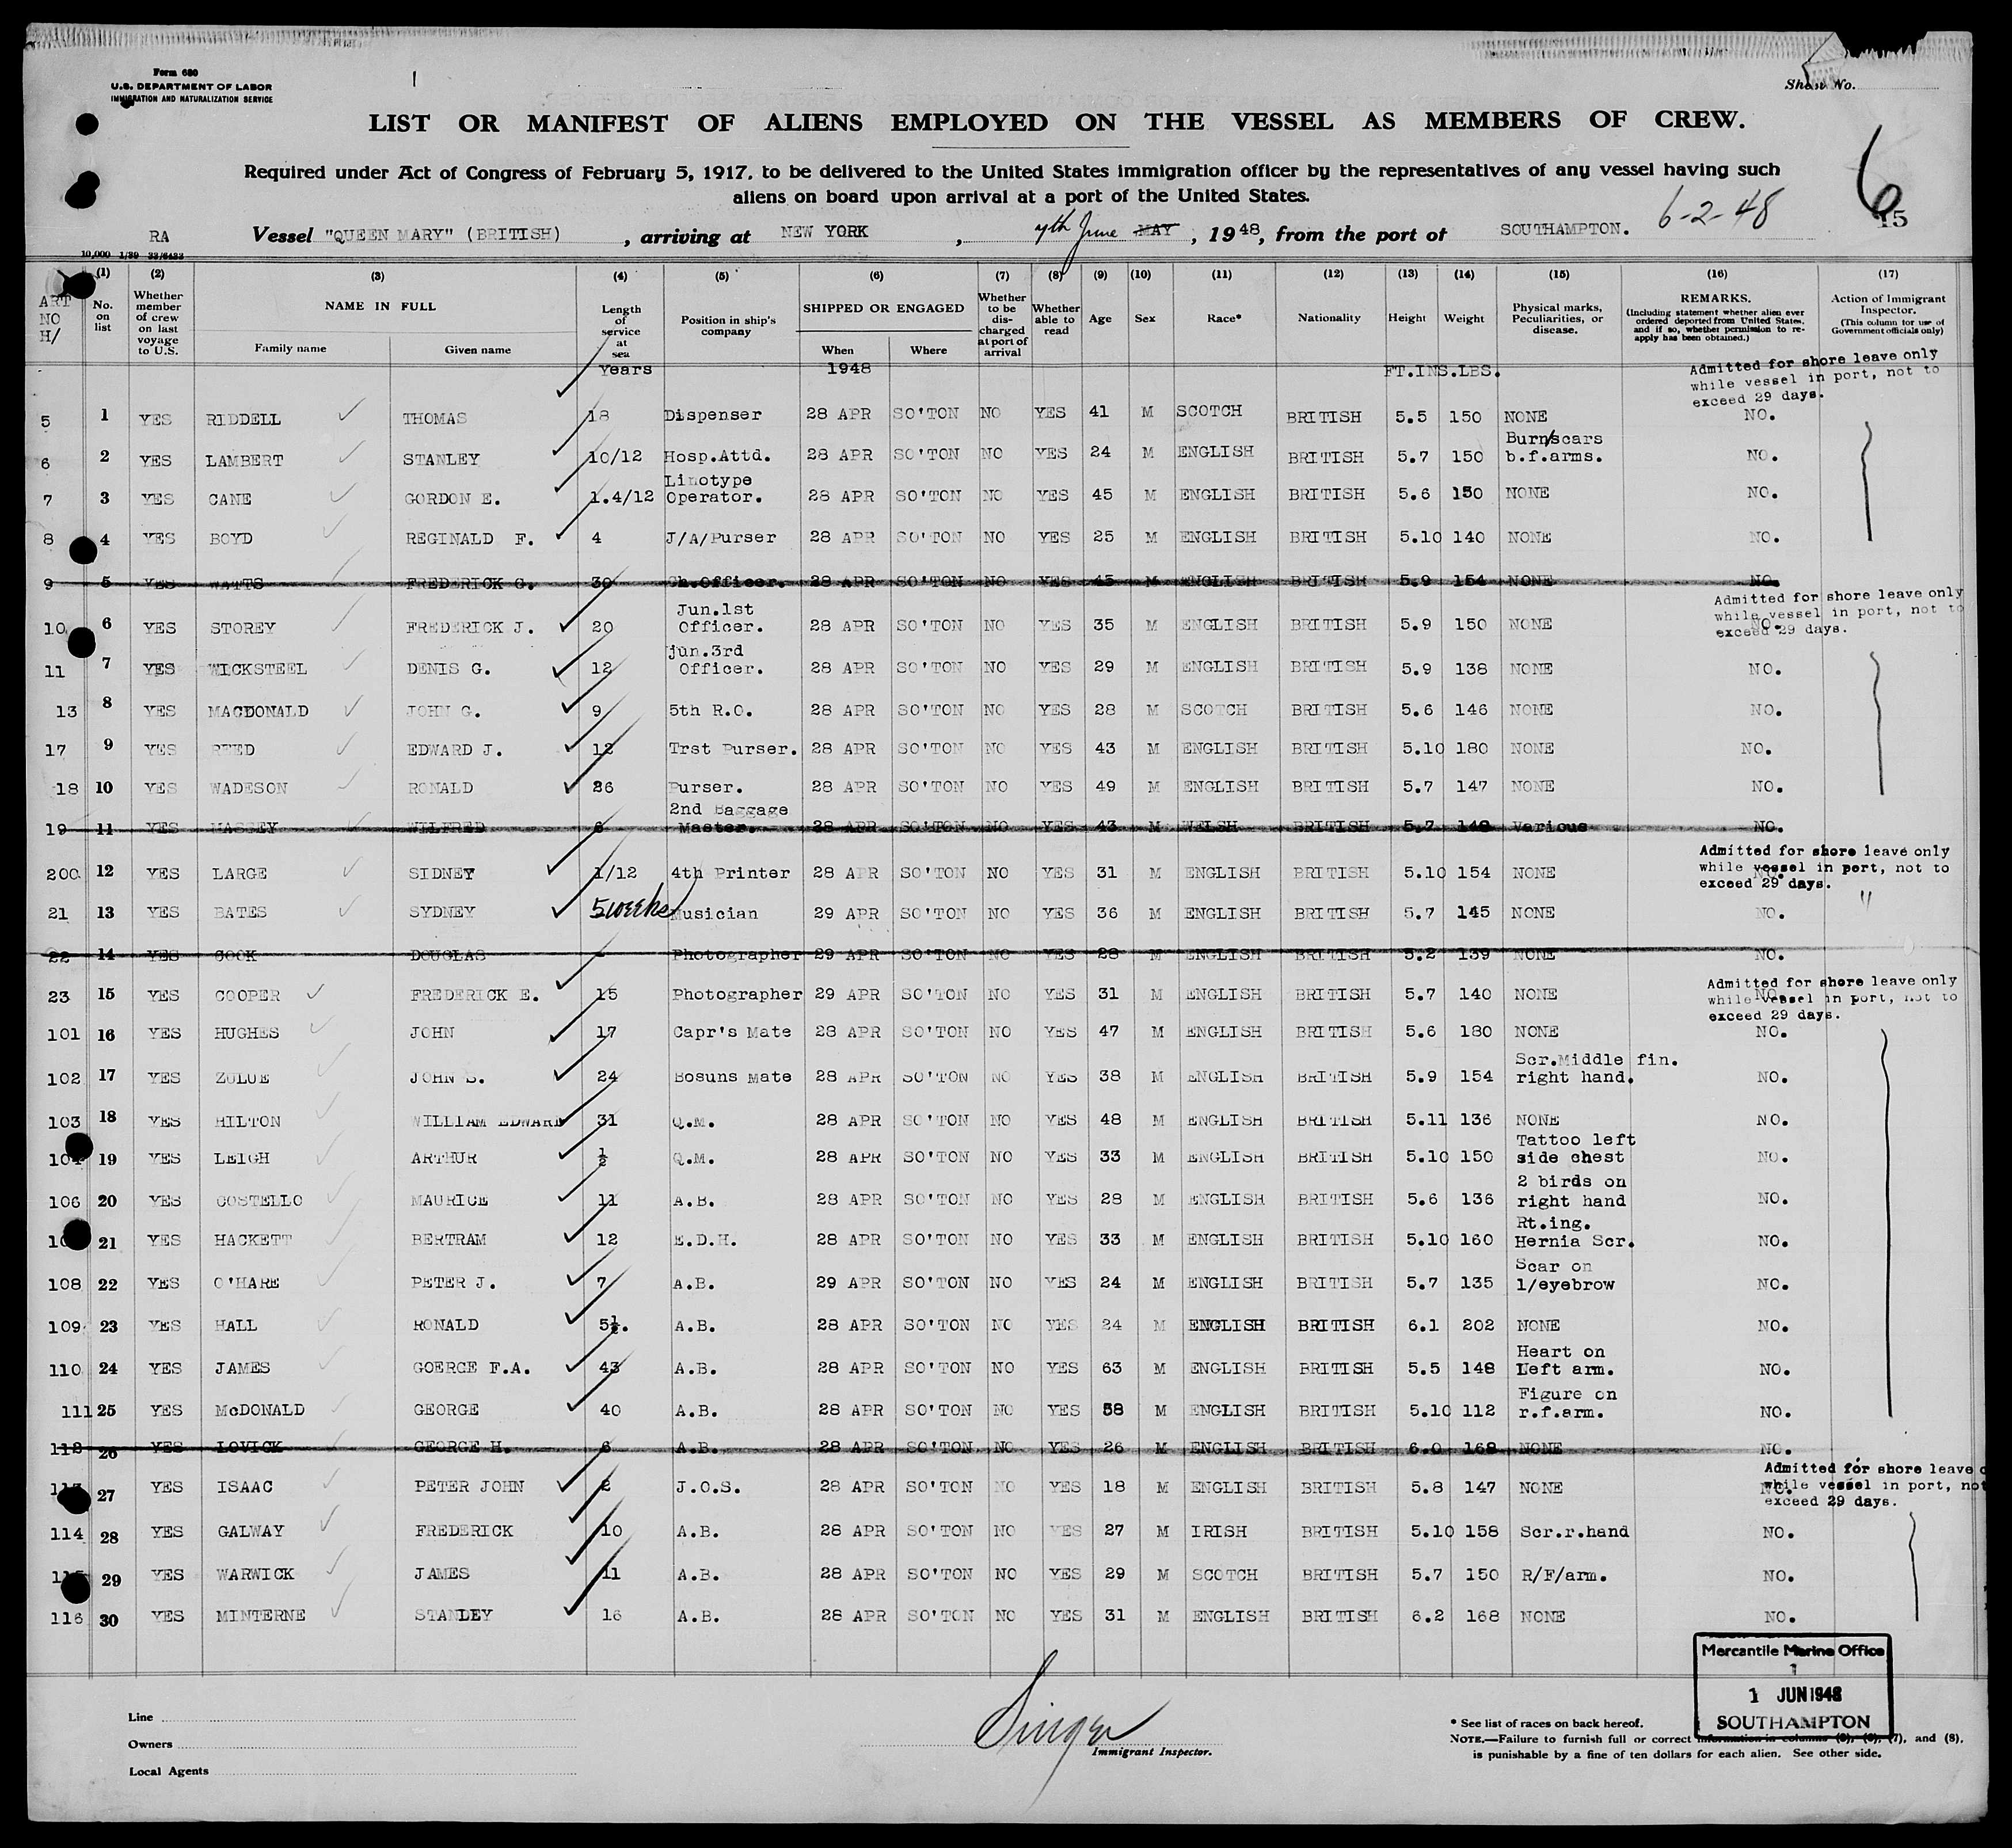 Form 680
U.S. DEPARTMENT OF LABOR
IMMIGRATION AND NATURALIZATION SERVICE
Sheet No.
LIST OR MANIFEST OF ALIENS EMPLOYED ON THE VESSEL AS MEMBERS OF CREW.
6
Required under Act of Congress of February 5, 1917, to be delivered to the United States immigration officer by the representatives of any vessel having such
aliens on board upon arrival at a port of the United States.
6-2-48
15
RA Vessel "QUEEN MARY" (BRITISH), arriving at NEW YORK, 7th June MAY, 1948, from the port of SOUTHAMPTON.
10,000 1/39
(1) (2) (3) (4) (5) (6) (7) (8) (9) (10) (11) (12) (13) (14) (15) (16) (17)
ART NO H/ No. on list Whether member of crew on last voyage to U.S. NAME IN FULL Family name Given name Length of service at sea Position in ship's company SHIPPED OR ENGAGED When Where Whether to be discharged at port of arrival Whether able to read Age Sex Race* Nationality Height Weight Physical marks, Peculiarities, or disease. REMARKS. (Including statement whether alien ever ordered deported from United States, and if so, whether permission to re-apply has been obtained.) Action of Immigrant Inspector. (This column for use of Government officials only)
Years 1948 FT.INS.LBS.
Admitted for shore leave only while vessel in port, not to exceed 29 days.
5 1 YES RIDDELL THOMAS 18 Dispenser 28 APR SO'TON NO YES 41 M SCOTCH BRITISH 5.5 150 NONE NO.
6 2 YES LAMBERT STANLEY 10/12 Hosp.Attd. 28 APR SO'TON NO YES 24 M ENGLISH BRITISH 5.7 150 Burn/scars b.f.arms. NO.
7 3 YES CANE GORDON E. 1.4/12 Linotype Operator. 28 APR SO'TON NO YES 45 M ENGLISH BRITISH 5.6 150 NONE NO.
8 4 YES BOYD REGINALD F. 4 J/A/Purser 28 APR SO'TON NO YES 25 M ENGLISH BRITISH 5.10 140 NONE NO.
9 5 YES WATTS FREDERICK G. 30 Ch.Officer. 28 APR SO'TON NO YES 45 M ENGLISH BRITISH 5.9 154 NONE NO.
Admitted for shore leave only while vessel in port, not to exceed 29 days.
10 6 YES STOREY FREDERICK J. 20 Jun.1st Officer. 28 APR SO'TON NO YES 35 M ENGLISH BRITISH 5.9 150 NONE NO.
11 7 YES WICKSTEEL DENIS G. 12 jun.3rd Officer. 28 APR SO'TON NO YES 29 M ENGLISH BRITISH 5.9 138 NONE NO.
13 8 YES MACDONALD JOHN G. 9 5th R.O. 28 APR SO'TON NO YES 28 M SCOTCH BRITISH 5.6 146 NONE NO.
17 9 YES REED EDWARD J. 12 Trst Purser. 28 APR SO'TON NO YES 43 M ENGLISH BRITISH 5.10 180 NONE NO.
18 10 YES WADESON RONALD 26 Purser. 28 APR SO'TON NO YES 49 M ENGLISH BRITISH 5.7 147 NONE NO.
19 11 YES MASSEY WILFRED 6 2nd Baggage Master. 28 APR SO'TON NO YES 43 M WELSH BRITISH 5.7 148 Various NO.
Admitted for shore leave only while vessel in port, not to exceed 29 days.
200 12 YES LARGE SIDNEY 1/12 4th Printer 28 APR SO'TON NO YES 31 M ENGLISH BRITISH 5.10 154 NONE NO.
21 13 YES BATES SYDNEY 5 weeks Musician 29 APR SO'TON NO YES 36 M ENGLISH BRITISH 5.7 145 NONE NO. "
22 14 YES COOK DOUGLAS - Photographer 29 APR SO'TON NO YES 28 M ENGLISH BRITISH 5.2 139 NONE NO.
Admitted for shore leave only while vessel in port, not to exceed 29 days.
23 15 YES COOPER FREDERICK E. 15 Photographer 29 APR SO'TON NO YES 31 M ENGLISH BRITISH 5.7 140 NONE NO.
101 16 YES HUGHES JOHN 17 Capr's Mate 28 APR SO'TON NO YES 47 M ENGLISH BRITISH 5.6 180 NONE NO.
102 17 YES ZULUE JOHN S. 24 Bosuns Mate 28 APR SO'TON NO YES 38 M ENGLISH BRITISH 5.9 154 Scr.Middle fin. right hand. NO.
103 18 YES HILTON WILLIAM EDWARD 31 Q.M. 28 APR SO'TON NO YES 48 M ENGLISH BRITISH 5.11 136 NONE NO.
104 19 YES LEIGH ARTHUR ½ Q.M. 28 APR SO'TON NO YES 33 M ENGLISH BRITISH 5.10 150 Tattoo left side chest NO.
106 20 YES COSTELLO MAURICE 11 A.B. 28 APR SO'TON NO YES 28 M ENGLISH BRITISH 5.6 136 2 birds on right hand NO.
21 YES HACKETT BERTRAM 12 E.D.H. 28 APR SO'TON NO YES 33 M ENGLISH BRITISH 5.10 160 Rt.ing. Hernia Scr. NO.
108 22 YES O'HARE PETER J. 7 A.B. 29 APR SO'TON NO YES 24 M ENGLISH BRITISH 5.7 135 Scar on l/eyebrow NO.
109 23 YES HALL RONALD 5½. A.B. 28 APR SO'TON NO YES 24 M ENGLISH BRITISH 6.1 202 NONE NO.
110 24 YES JAMES GOERGE F.A. 43 A.B. 28 APR SO'TON NO YES 63 M ENGLISH BRITISH 5.5 148 Heart on Left arm. NO.
111 25 YES McDONALD GEORGE 40 A.B. 28 APR SO'TON NO YES 58 M ENGLISH BRITISH 5.10 112 Figure on r.f.arm. NO.
112 26 YES LOVICK GEORGE H. 6 A.B. 28 APR SO'TON NO YES 26 M ENGLISH BRITISH 6.0 168 NONE NO.
Admitted for shore leave while vessel in port, not exceed 29 days.
27 YES ISAAC PETER JOHN 2 J.O.S. 28 APR SO'TON NO YES 18 M ENGLISH BRITISH 5.8 147 NONE NO.
114 28 YES GALWAY FREDERICK 10 A.B. 28 APR SO'TON NO YES 27 M IRISH BRITISH 5.10 158 Scr.r.hand NO.
115 29 YES WARWICK JAMES 11 A.B. 28 APR SO'TON NO YES 29 M SCOTCH BRITISH 5.7 150 R/F/arm. NO.
116 30 YES MINTERNE STANLEY 16 A.B. 28 APR SO'TON NO YES 31 M ENGLISH BRITISH 6.2 168 NONE NO.
Mercantile Marine Office
1
1 JUN 1948
SOUTHAMPTON
Line
Owners
Local Agents
Singer
Immigrant Inspector.
* See list of races on back hereof.
NOTE.—Failure to furnish full or correct information in columns (2), (3), (7), and (8),
is punishable by a fine of ten dollars for each alien. See other side.